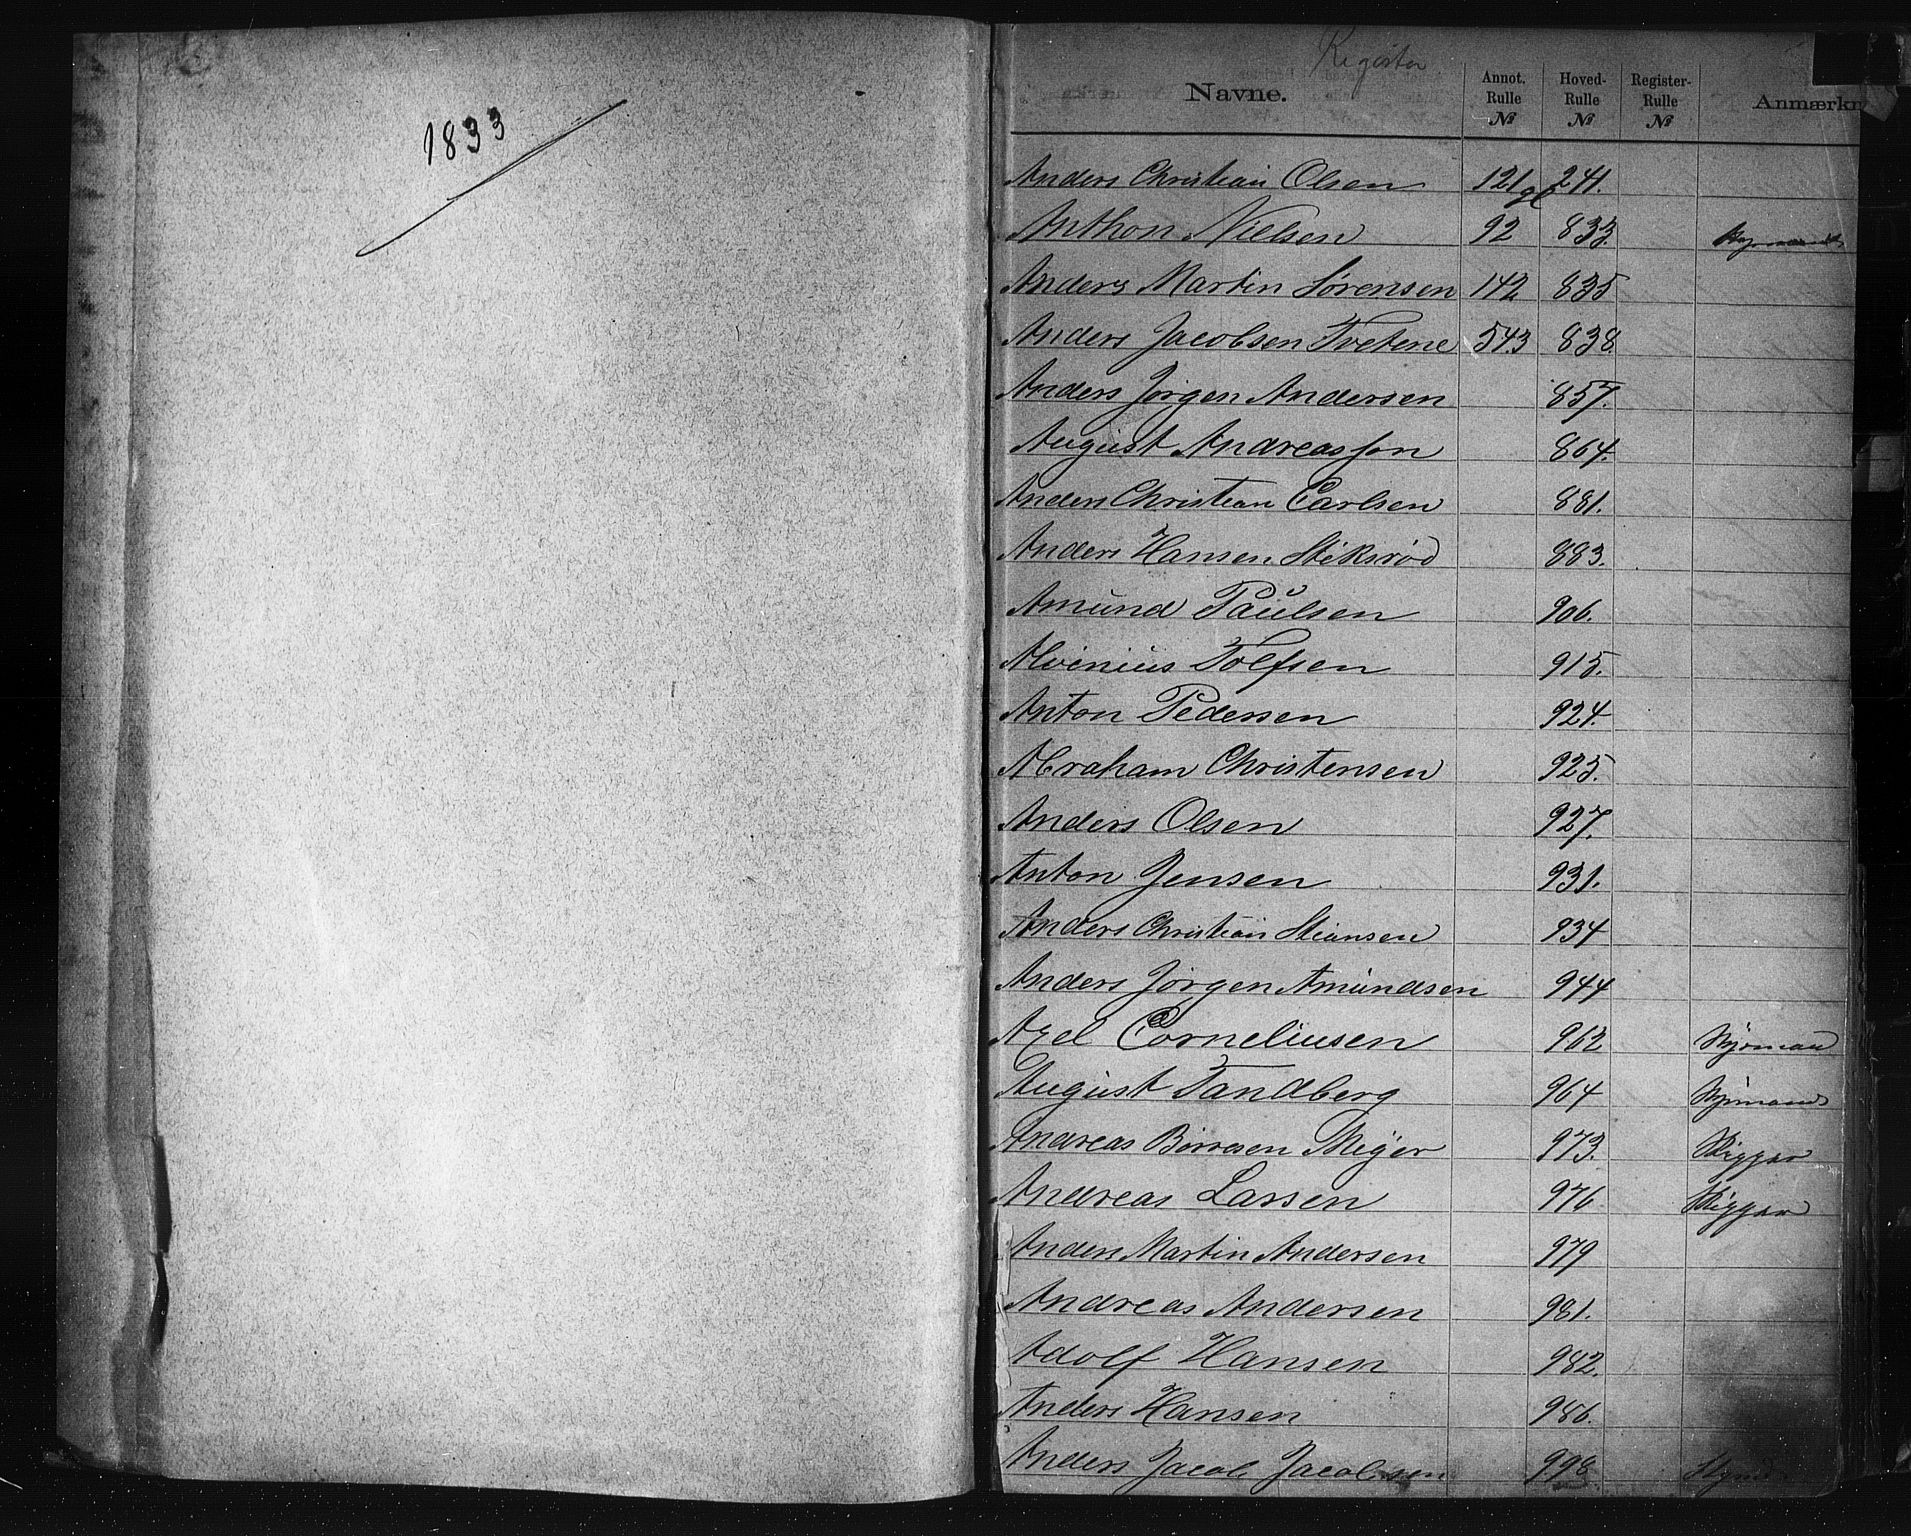 1833
Register
Navne. Annot. Rulle № Hoved- Rulle № Register- Rulle № Anmærkn
Anders Christian Olsen 121 gl 241.
Anthon Nielsen 92 833.
Anders Martin Sørensen 142 835
Anders Jacobsen Tvetene 543 838.
Anders Jörgen Andersen 857.
August Andreasson 864.
Anders Christian Carlsen 881.
Anders Hansen Stiksrød 883.
Amund Paulsen 906.
Alvinius Tolfsen 915.
Anton Pedersen 924.
Abraham Christensen 925.
Anders Olsen 927.
Anton Jensen 931.
Anders Christian Stiansen 934
Anders Jörgen Amundsen 944
Axel Corneliusen 962 Styrmand
August Tandberg 964 Styrmand
Andreas Börresen Meÿer 973. Skipper
Andreas Larsen 976 Skipper
Anders Martin Andersen 979
Andreas Andersen 981.
Adolf Hansen 982.
Anders Hansen 986.
Anders Jacob Jacobsen 998